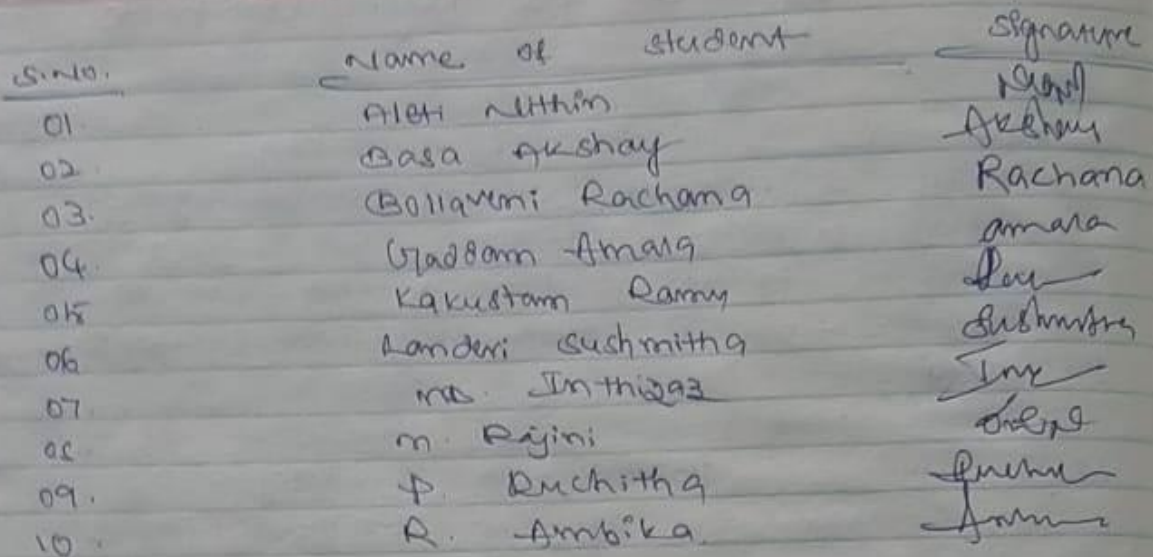 S.No. Name of student Signature
01 Aleti Nithin
02 Basa Akshay Akshay
03. Bollaveni Rachana Rachana
04 Gaddam Amala amala
05 Kakustam Ramy
06 Landeri Sushmitha Sushmitha
07 MD. Inthiyaz
08 M. Rajini
09. P. Ruchitha
10. R. Ambika